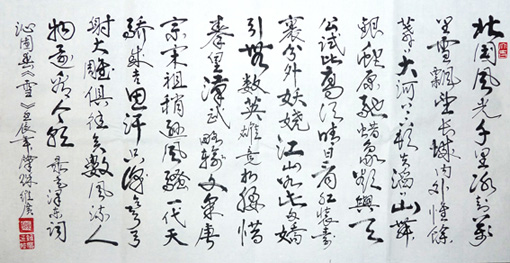 北国風光千里冰封萬
里雪飄望長城内外惟餘
莽莽大河上下頓失滔滔山舞
銀蛇原馳蜡象欲與天
公試比高須晴日看红裝素
裹分外妖娆江山如此多嬌
引無数英雄竞折腰惜
秦皇漢武略输文采唐
宗宋祖稍逊風骚一代天
驕成吉思汗只識弯弓
射大雕俱往矣数風流人
物還看今朝 录毛泽东词
沁園春《雪》壬辰年